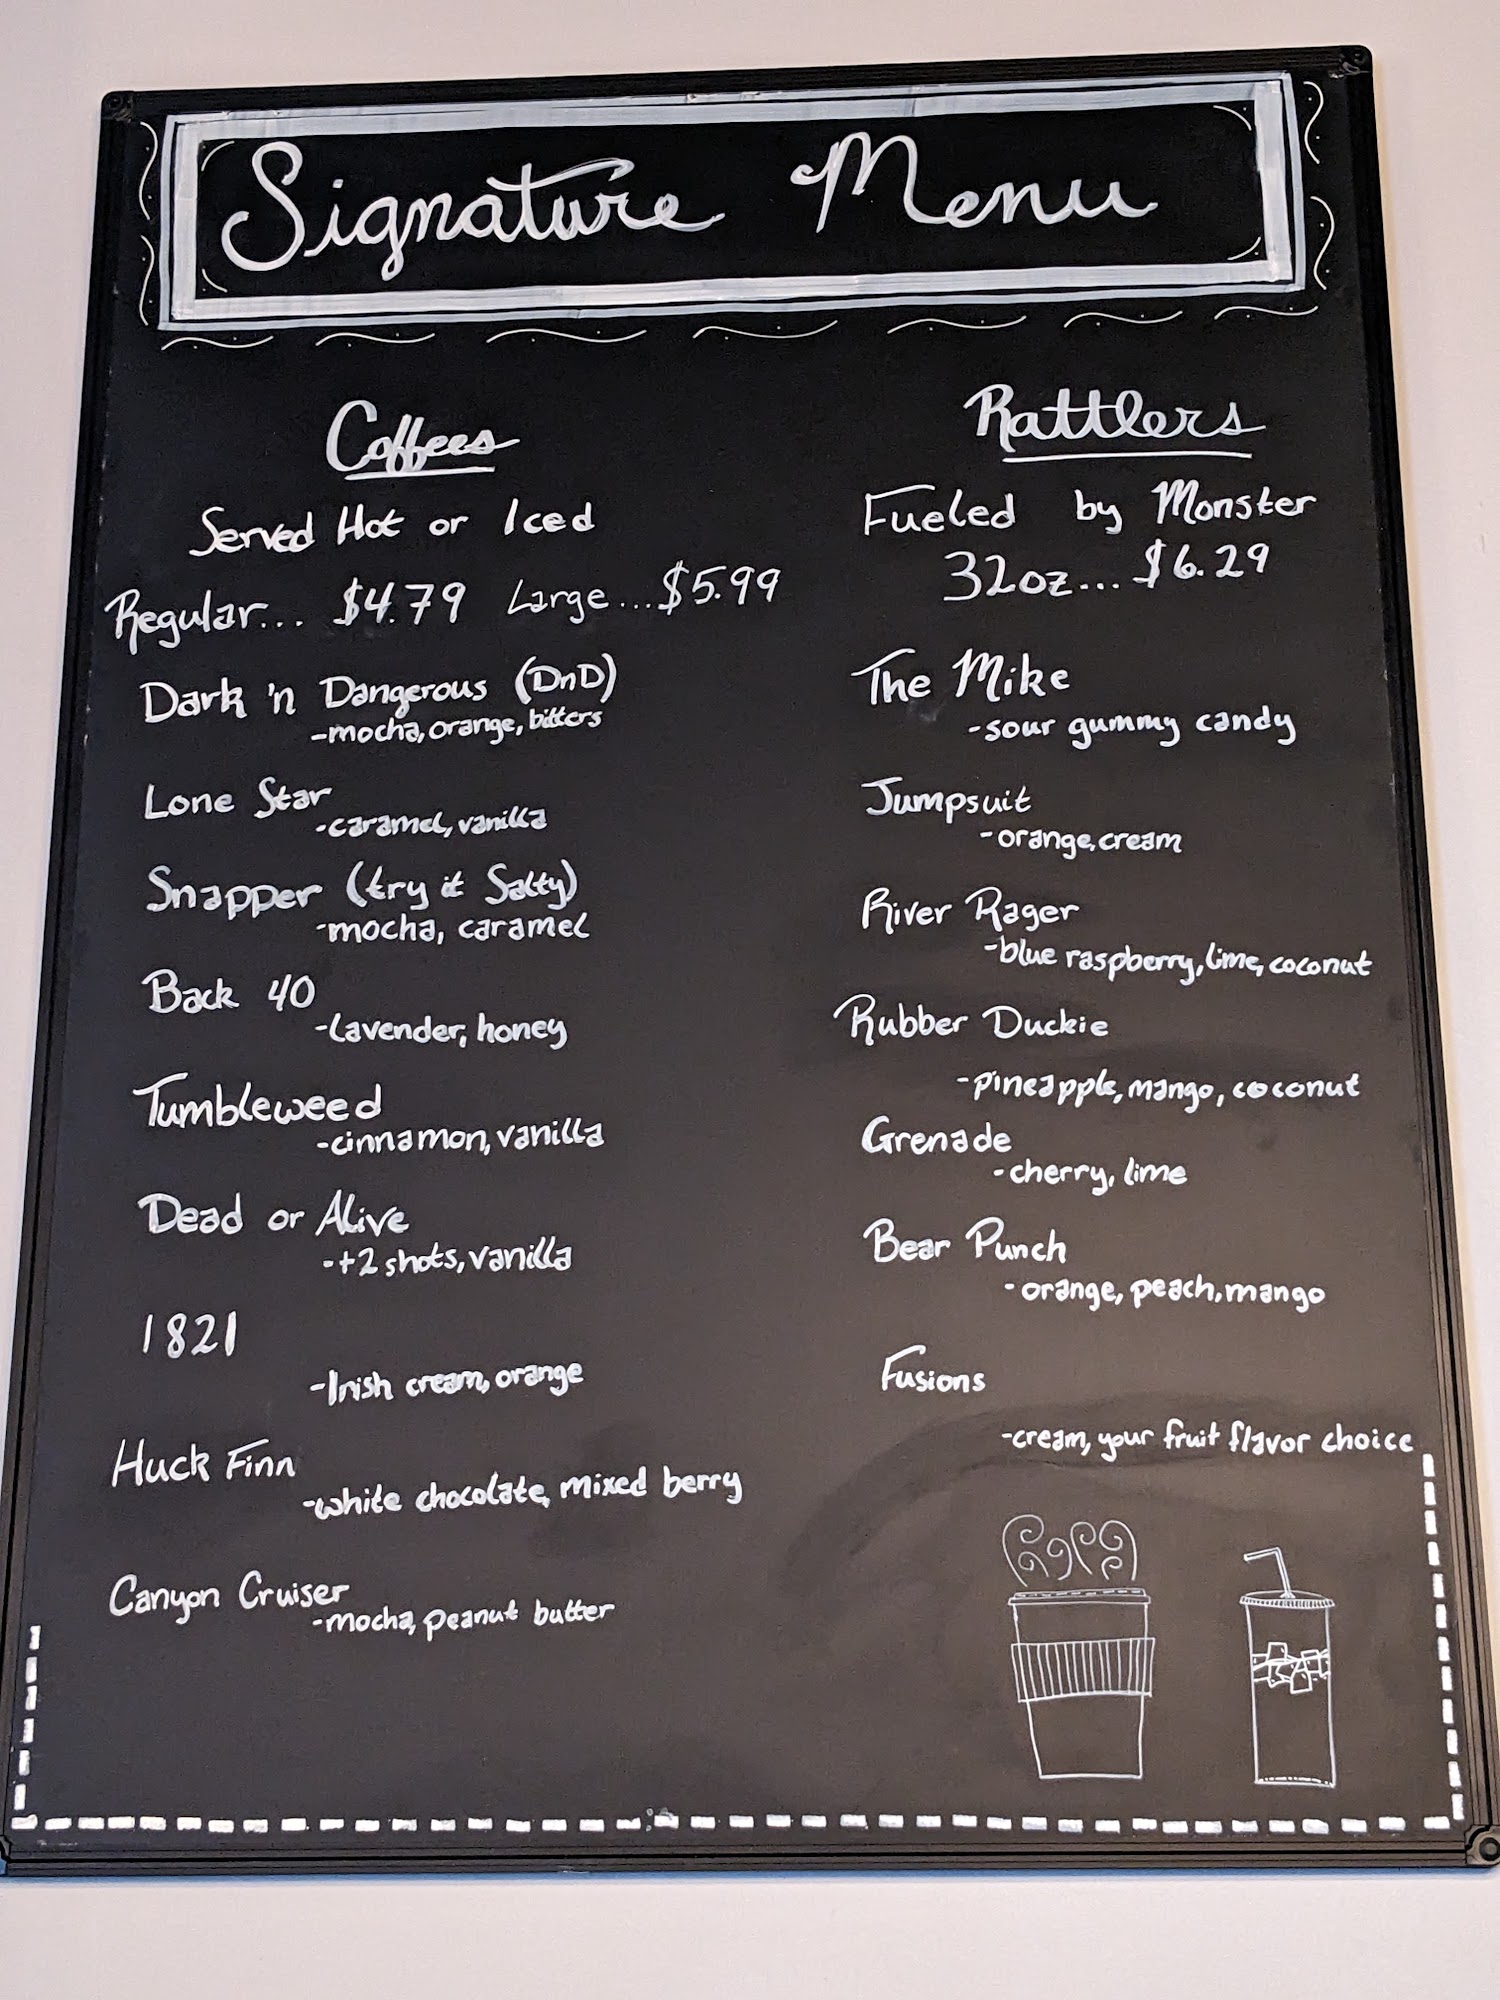 Signature Menu
Coffees
Served Hot or Iced
Regular... $4.79 Large...$5.99
Dark 'n Dangerous (DnD)
-mocha, orange, bitters
Lone Star
-caramel, vanilla
Snapper (try it Salty)
-mocha, caramel
Back 40
-lavender, honey
Tumbleweed
-cinnamon, vanilla
Dead or Alive
-+2 shots, vanilla
1821
-Irish cream, orange
Huck Finn
-white chocolate, mixed berry
Canyon Cruiser
-mocha, peanut butter
Rattlers
Fueled by Monster
32oz... $6.29
The Mike
-sour gummy candy
Jumpsuit
-orange, cream
River Rager
-blue raspberry, lime, coconut
Rubber Duckie
-pineapple, mango, coconut
Grenade
-cherry, lime
Bear Punch
-orange, peach, mango
Fusions
-cream, your fruit flavor choice